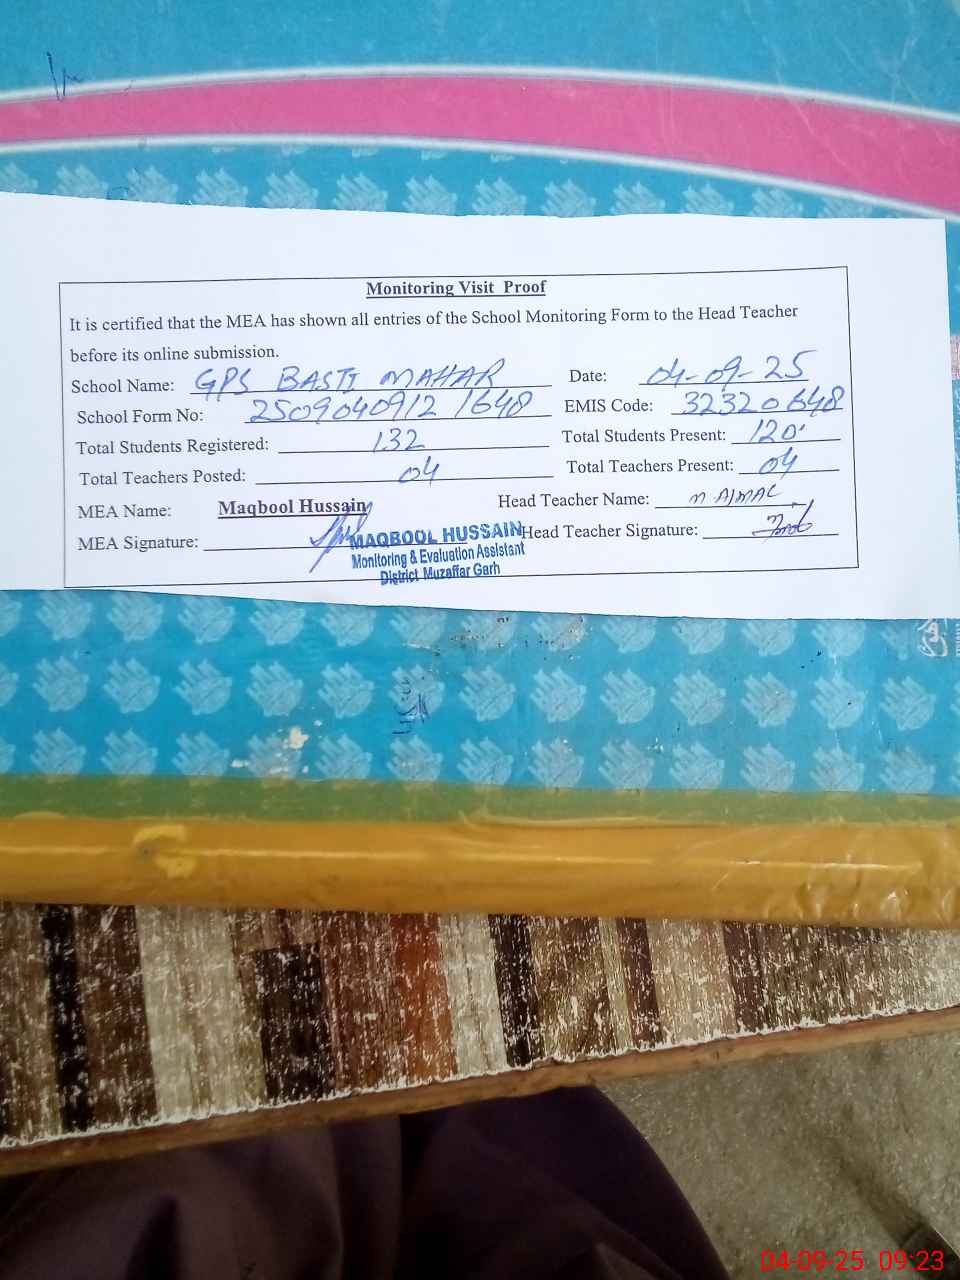 Monitoring Visit Proof
It is certified that the MEA has shown all entries of the School Monitoring Form to the Head Teacher
before its online submission.
School Name: GPS BASTI MAHAR Date: 04-09-25
School Form No: 2509040912 1648 EMIS Code: 32320648
Total Students Registered: 132 Total Students Present: 120
Total Teachers Posted: 04 Total Teachers Present: 04
MEA Name: Maqbool Hussain Head Teacher Name: M AJMAL
MEA Signature: Head Teacher Signature:
MAQBOOL HUSSAIN
Monitoring & Evaluation Assistant
District Muzaffar Garh
04-09-25 09:23